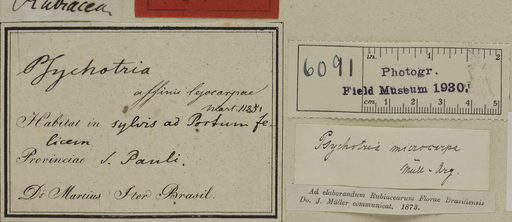 Rubiaceae
Psychotria
affinis lejocarpae
Mart.
Habitat in sylvis ad Portum fe-
licem
Provinciae S. Pauli.
Dr Martius Iter Brasil.
6091
in. 1 2
Photogr.
Field Museum 1930.
cm. 1 2 3 4 5
Psychotria microcarpa
Müll-Arg.
Ad elaborandum Rubiacearum Florae Brasiliensis
Do. J. Müller communicat. 1873.